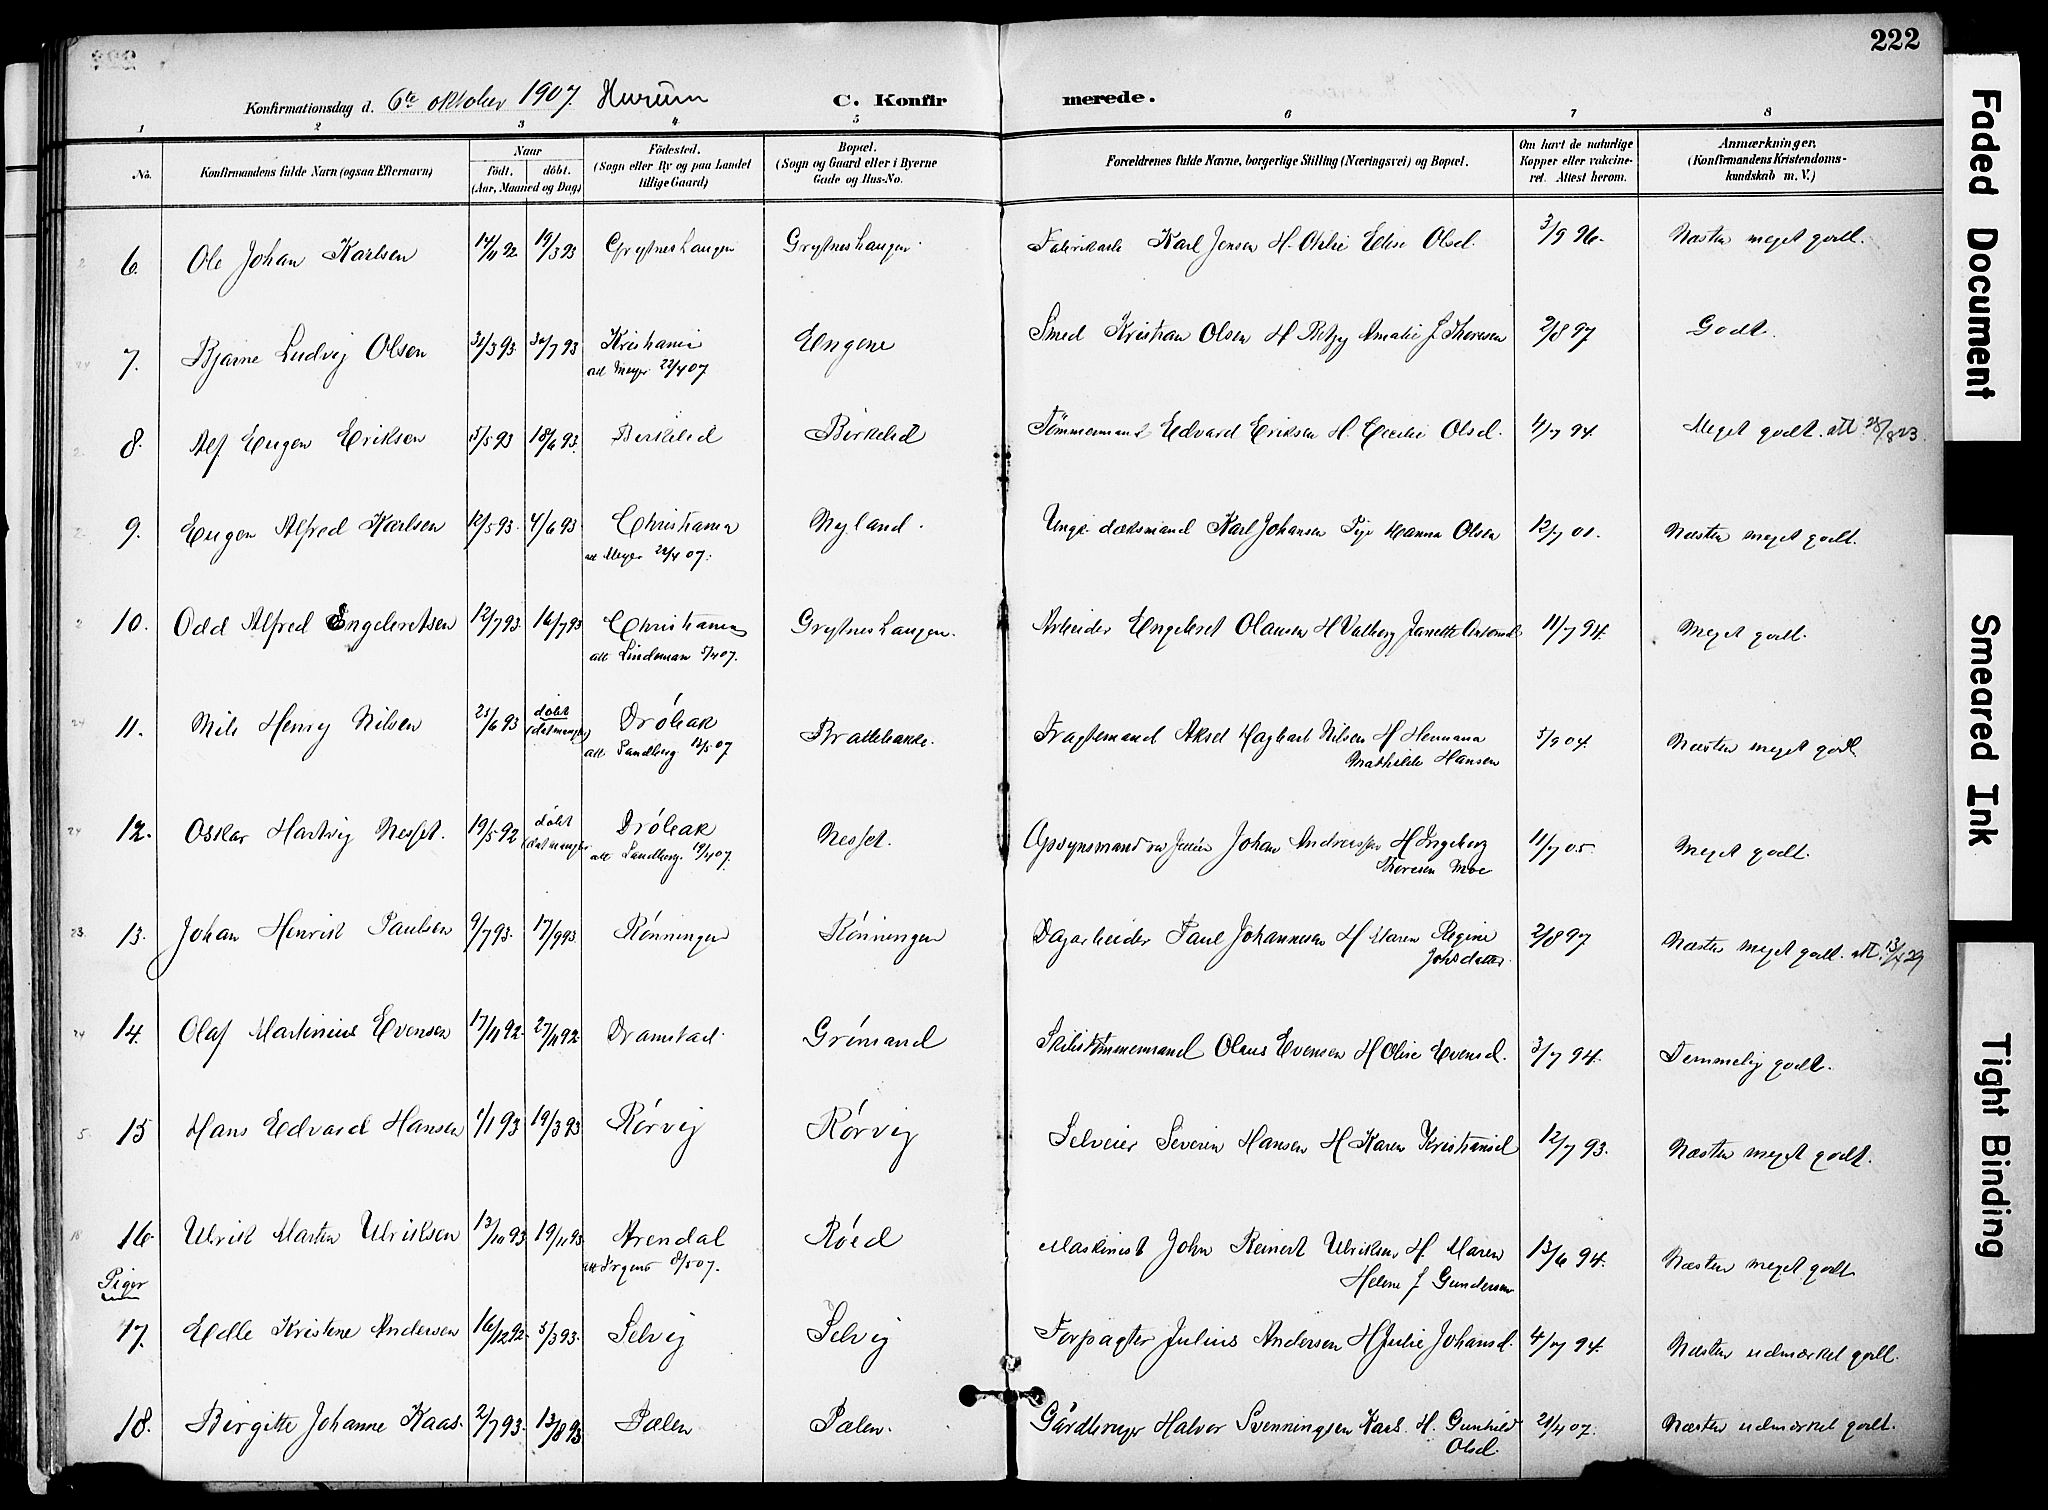 222
Konfirmationsdag d. 6te oktober 1907. Hurum C. Konfirmerede.
1 2 3 4 5 6 7 8
No. Konfirmandens fulde Navn (ogsaa Efternavn) Naar födt. döbt. (Aar, Maaned og Dag) Födested. (Sogn eller By og paa Landet tillige Gaard) Bopæl. (Sogn og Gaard eller i Byerne Gade og Hus-No. Forældrenes fulde Navne, borgerlige Stilling (Næringsvei) og Bopæl. Om havt de naturlige Kopper eller vakcineret. Attest herom. Anmærkninger. (Konfirmandens Kristendomskundskab m. V.)
6. Ole Johan Karlsen 14/11 92 19/3 93 Grytneshaugen Grytneshaugen Fabrikarb Karl Jensen H. Elise Olsd. 3/9 96. Næsten meget godt.
7. Bjarne Ludvig Olsen 31/3 93 30/7 93 Kristiania Engene Smed Kristian Olsen H Betzy Amalie J. Thoresen 2/8 97 Godt.
att Meyer 22/4 07
8. Alf Eugen Eriksen 5/5 93 18/6 93. Birkelid Birkelid Tömmermand Edvard Eriksen H. Cecilie Olsd. 4/7 94. Meget godt. att. 28/8 23.
9. Eugen Alfred Karlsen 12/5 93. 4/6 93 Christiania Nyland. Karl Johansen Pige Hanna Olsen 12/7 01. Næsten meget godt.
att Meyer 22/4 07.
10. Odd Alfred Engebretsen 12/7 93. 16/7 93 Christiania Grytneshaugen. Arbeider Engebret Olausen H Valborg Janette Antonsd 11/7 94. Meget godt.
att Lindeman 5/4 07.
11. Nils Henry Nilsen 25/6 93 döbt (dat mangler) Dröbak Brattebakke. Fragtemand Aksel Hagbart Nilsen H Hermana 5/9 04. Næsten meget godt
att Sandberg 13/5 07 Mathilde Hansen
12. Oskar Hartvig Nesset. 19/5 92 döbt (dat mangler Dröbak Nesset. Opsynsmand Johan Andreassen H Ingeborg 11/7 05. Meget godt.
att Sandberg. 19/4 07. Thoresen Moe
13. Johan Henrik Paulsen 9/7 93. 17/9 93. Rönningen Rönningen Dagarbeider Paul Johannesen H Maren Regine 2/8 97 Næsten meget godt. att.
Johsdatter.
14. Olaf Martinius Evensen 17/11 92. 27/11 92. Dramstad. Grömand Tømmermand Olaus Evensen H Olise Evensd. 3/7 94. Temmelig godt.
15 Hans Edvard Hansen 1/1 93 19/3 93 Rörvig Rörvig Selveier Severin Hansen H Karen Kristiansd 12/7 93. Næsten meget godt.
16 Ulrik Martin Ulriksen 13/10 93 19/11 93 Arendal Röed Maskinist John Reinert Ulriksen H. Maren 13/6 94. Næsten meget godt
att Irgens 8/5 07. Helene J Gundersen
Piger
17. Edle Kristine Andersen 16/12 92. 5/3 93. Selvig Selvig Forpagter Julius Andersen H Julie Johansd. 4/7 94. Næsten udmærket godt.
18. Birgitte Johanne Kaas. 2/7 93. 13/8 93 Sælen Sælen. Gårdbruger Halvor Svenningsen Kaas. H. Gunhild 21/4 07. Næsten udmærket godt.
Olsd.
Faded Document
Smeared Ink
Tight Binding